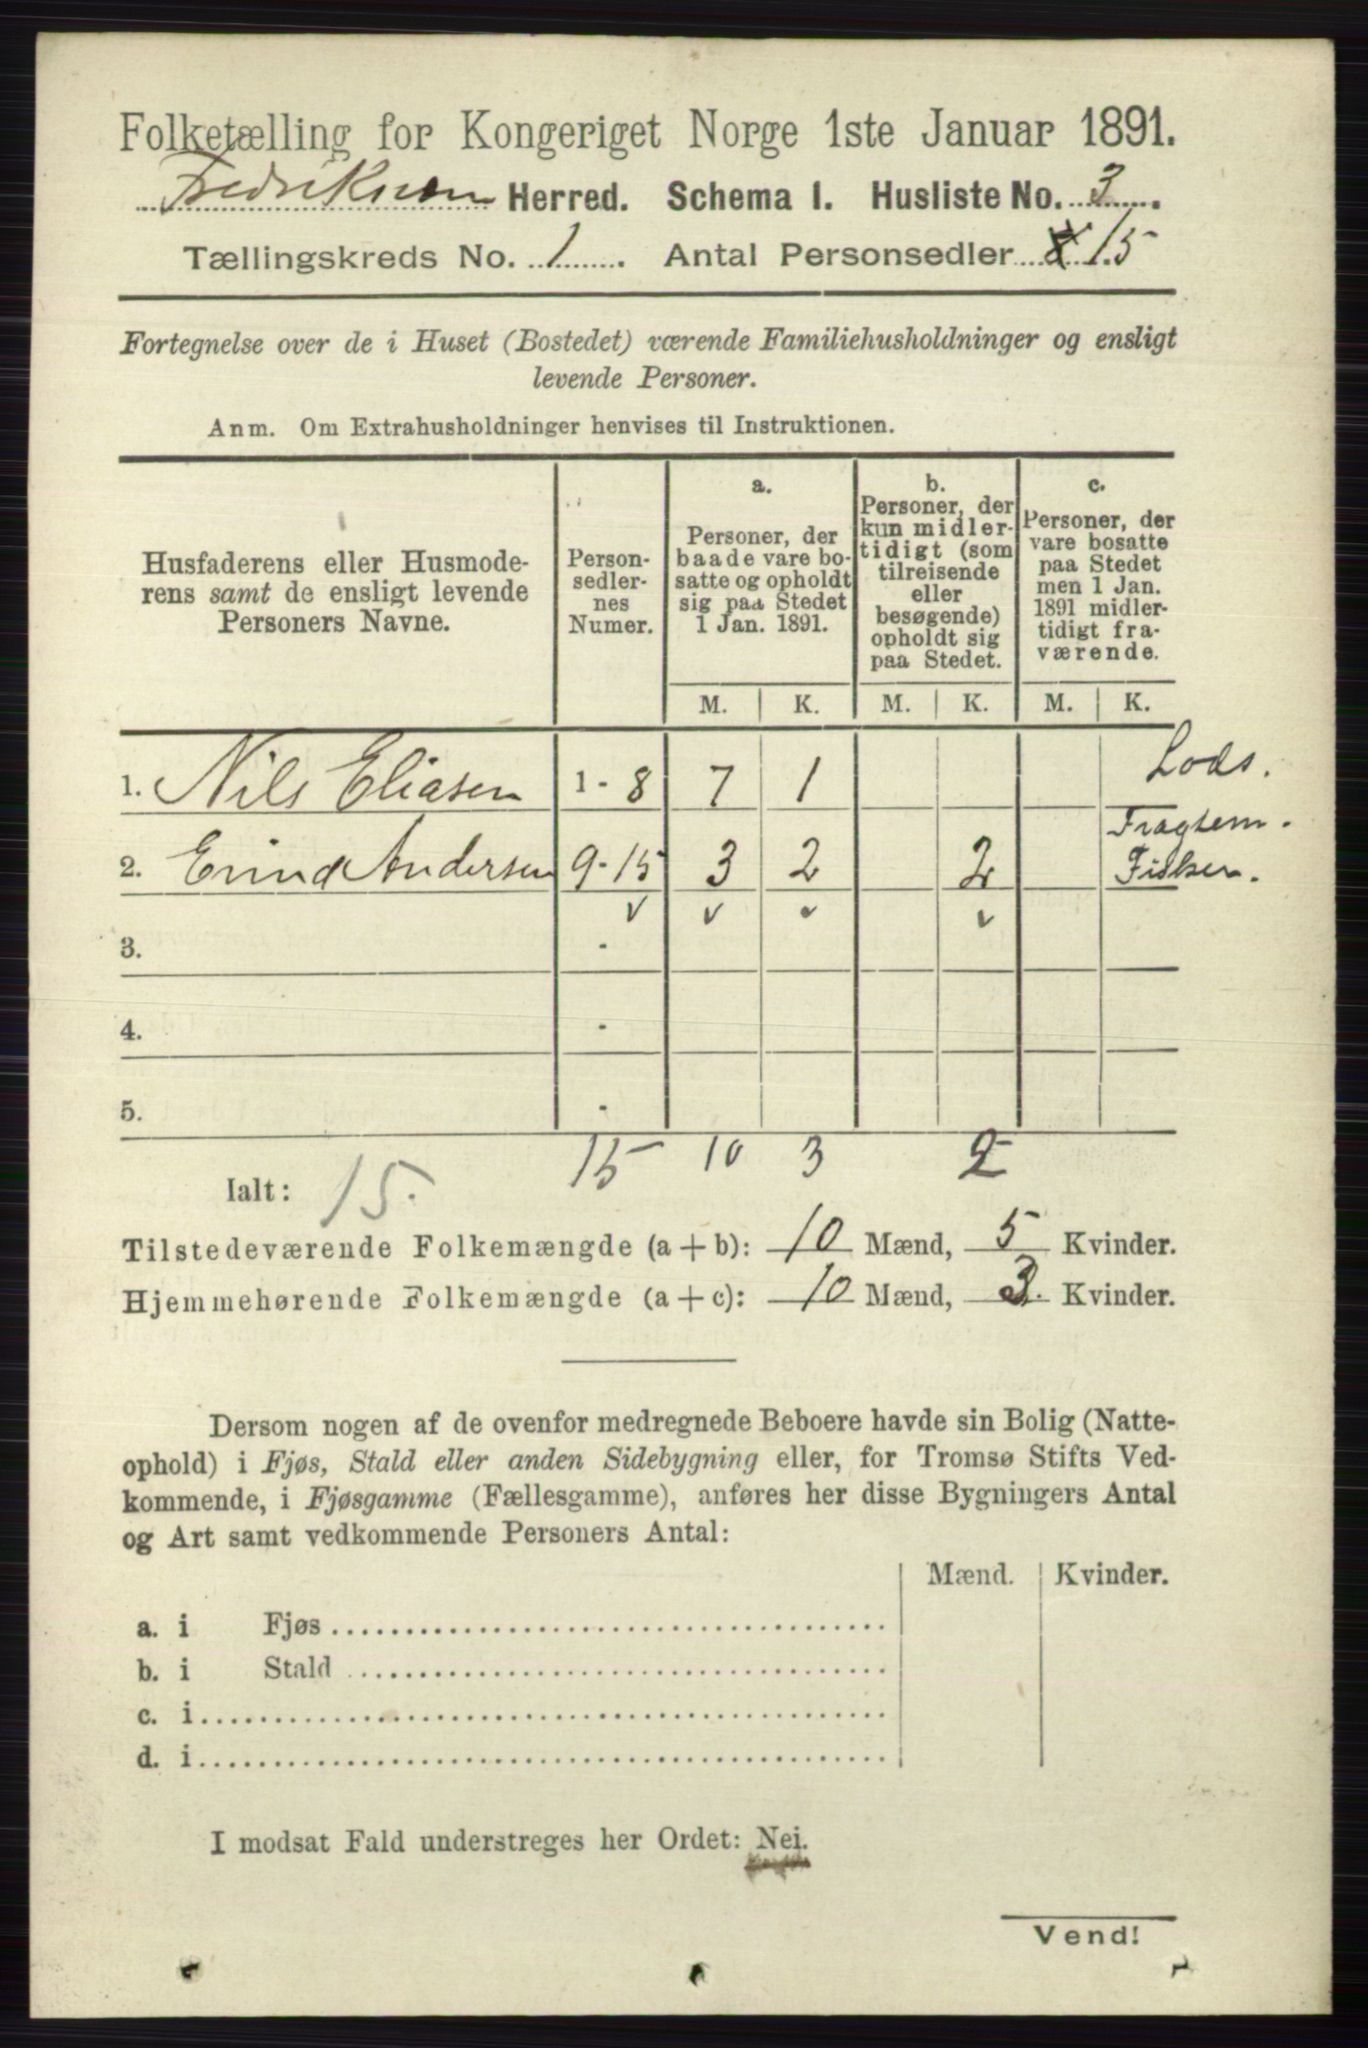 Folketælling for Kongeriget Norge 1ste Januar 1891.
Herred. Schema 1. Husliste No. 3.
Tællingskreds No. 1. Antal Personsedler 15
Fortegnelse over de i Huset (Bostedet) værende Familiehusholdninger og ensligt
levende Personer.
Anm. Om Extrahusholdninger henvises til Instruktionen.
Husfaderens eller Husmode-
rens samt de ensligt levende
Personers Navne.
Person-
sedler-
nes
Numer.
a.
Personer, der
baade vare bo-
satte og opholdt
sig paa Stedet
1 Jan. 1891.
b.
Personer, der
kun midler-
tidigt (som
tilreisende
eller
besøgende)
opholdt sig
paa Stedet.
c.
Personer, der
vare bosatte
paa Stedet
men 1 Jan.
1891 midler-
tidigt fra-
værende.
M. K. M. K. M. K.
1. Nils Eliasen 1 - 8 7 1 Lods.
2. Andersen 9-15 3 2 2 Fisker.
3. -
4. -
5. -
15 10 3 2
Ialt: 15.
Tilstedeværende Folkemængde (a + b): 10 Mænd, 5 Kvinder.
Hjemmehørende Folkemængde (a + c): 10 Mænd, 3. Kvinder.
Dersom nogen af de ovenfor medregnede Beboere havde sin Bolig (Natte-
ophold) i Fjøs, Stald eller anden Sidebygning eller, for Tromsø Stifts Ved-
kommende, i Fjøsgamme (Fællesgamme), anføres her disse Bygningers Antal
og Art samt vedkommende Personers Antal:
Mænd. Kvinder.
a. i Fjøs
b. i Stald
c. i
d. i
I modsat Fald understreges her Ordet: Nei.
Vend!